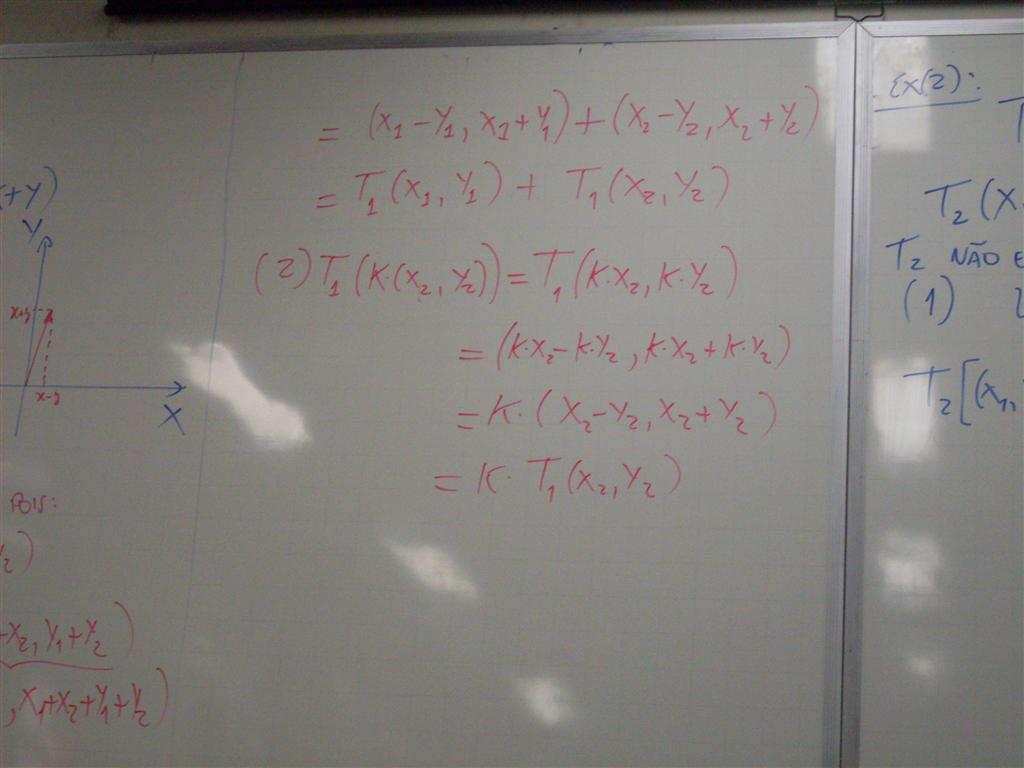 x+y)
Y
x+y
x-y
X
POIS:
Y₂)
+X₂, Y₁+Y₂)
, X₁+X₂+Y₁+Y₂)
= (X₁-Y₁, X₁+Y₁)+(X₂-Y₂, X₂+Y₂)
= T₁(X₁, Y₁) + T₁(X₂, Y₂)
(2) T₁(K·(X₂, Y₂)) = T₁(K·X₂, K·Y₂)
= (K·X₂-K·Y₂, K·X₂+K·Y₂)
= K·(X₂-Y₂, X₂+Y₂)
= K· T₁(X₂, Y₂)
Ex(2):
T₂(X
T₂ NÃO É
(1)
T₂[(X₁,